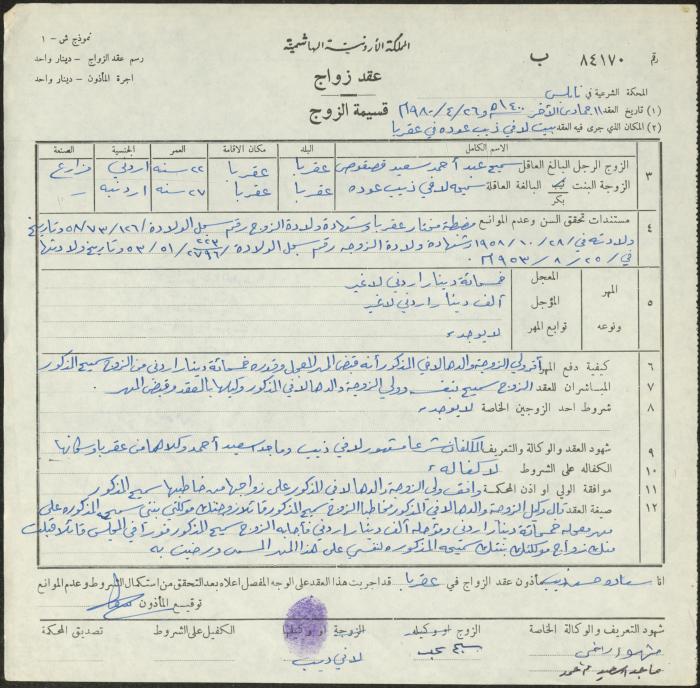 المملكة الأردنية الهاشمية
نموذج ش - ١
رسم عقد الزواج - دينار واحد
اجرة المأذون - دينار واحد
رقم ٨٤١٧٠ ب
عقد زواج
قسيمة الزوج
المحكمة الشرعية في نابلس
(١) تاريخ العقد ١١ جمادى الآخر ١٤٠٠هـ و ٢٦/٤/١٩٨٠م
(٢) المكان الذي جرى فيه العقد بيت لافي ذيب عوده في عقربا
الاسم الكامل البلد مكان الاقامة العمر الجنسية الصنعة
٣ الزوج الرجل البالغ العاقل سميح عبد أحمد سعيد عقربا عقربا ٢٢ سنه اردني مزارع
الزوجة البنت بكر البالغة العاقلة سميحه لافي ذيب عوده عقربا عقربا ٢٧ سنه اردنيه -
٤ مستندات تحقق السن وعدم الموانع مضبطة مختار عقربا وشهادة ولادة الزوج رقم سجل الولادة ١٢٦/٥٨/٧٣ وتاريخ
ولادته في ٢٨/١٠/١٩٥٨م وشهادة ولادة الزوجه رقم سجل الولادة وتاريخ ولادتها
في ٢٥/٨/١٩٥٣م
٥ المهر المعجل خمسائة دينار اردني لا غير
المؤجل ألف دينار اردني لا غير
ونوعه توابع المهر لا يوجد
٦ كيفية دفع المهر أقر ولي الزوجة والدها لافي المذكور أنه قبض المهر المعجل وقدره خمسائة دينار اردني من الزوج سميح المذكور
٧ المباشران للعقد الزوج سميح بنفسه وولي الزوجة والدها لافي المذكور وكيلها بالعقد وقبض المهر
٨ شروط احد الزوجين الخاصة لا يوجد
٩ شهود العقد والوكالة والتعريف المكلفان شرعا مشهور لافي ذيب وماجد سعيد أحمد وكلاهما من عقربا وسكانها
١٠ الكفالة على الشروط لا كفاله
١١ موافقة الولي او اذن المحكمة وافق ولي الزوجة والدها لافي المذكور على زواجها من خاطبها سميح المذكور
١٢ صيغة العقد قال وكيل الزوجة والدها لافي المذكور مخاطبا الزوج سميح المذكور قائلا زوجتك موكلتي بنتي سميحه المذكوره على
مهر معجله خمسائة دينار اردني ومؤجله ألف دينار اردني فأجابه الزوج سميح المذكور فورا في المجلس قائلا قبلت
منك زواج موكلتك بنتك سميحه المذكوره لنفسي على هذا المهر المسمى ورضيت به
انا مأذون عقد الزواج في عقربا قد اجريت هذا العقد على الوجه المفصل اعلاه بعد التحقق من استكمال الشروط وعدم الموانع
توقيع المأذون
شهود التعريف والوكالة الخاصة الزوج او وكيله الزوجة او وكيلها الكفيل على الشروط تصديق المحكمة
لافي ذيب